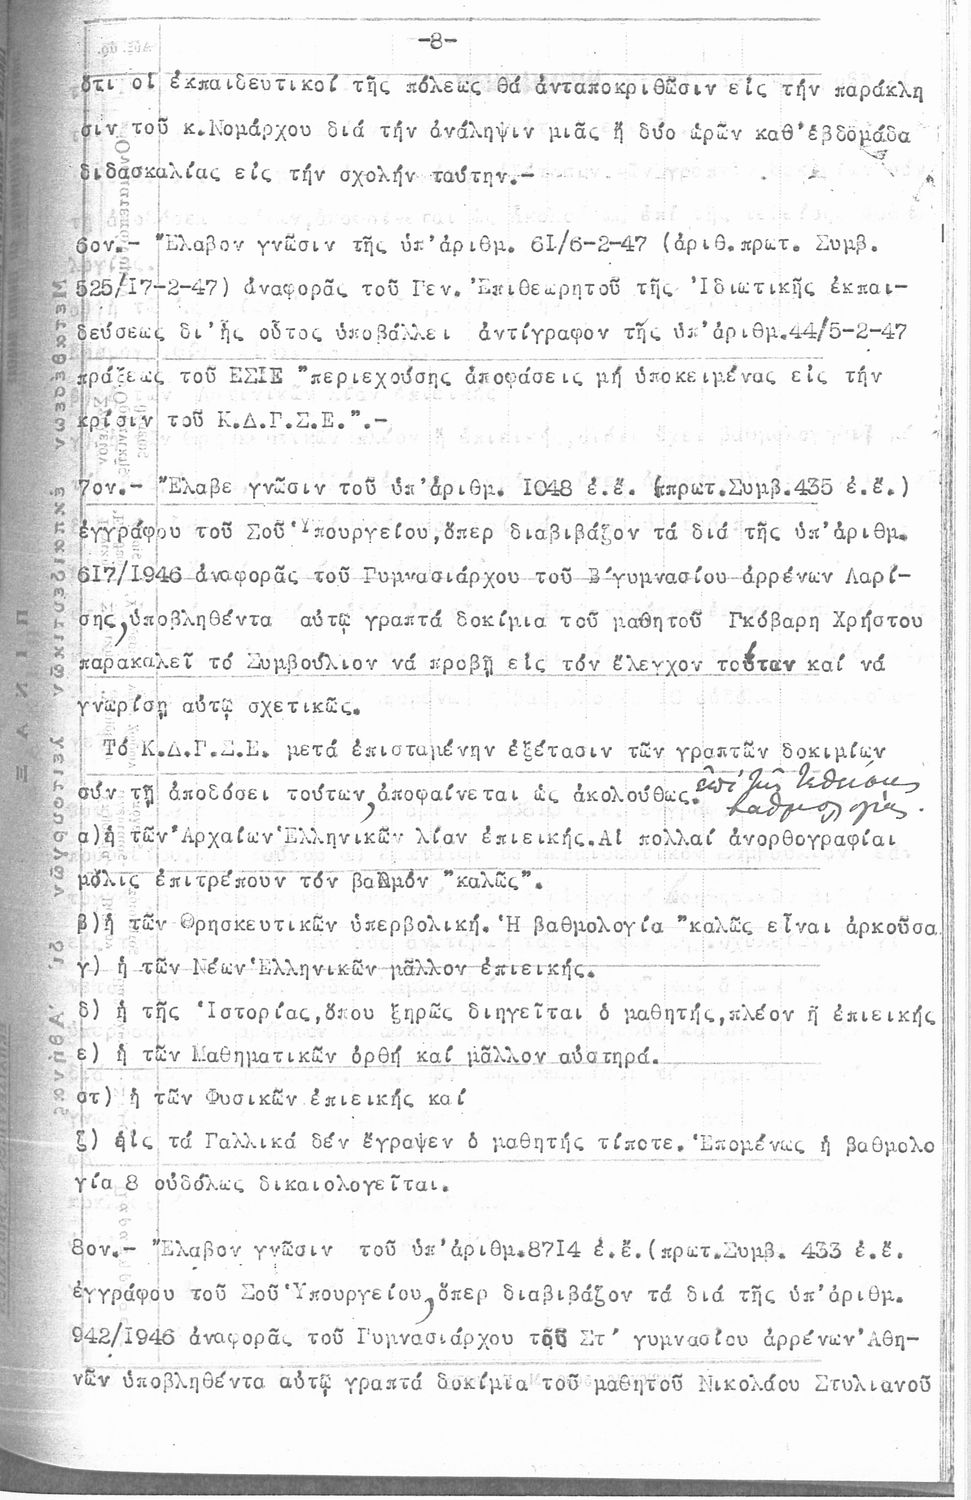 -8-
ὅτι οἱ ἐκπαιδευτικοί τῆς πόλεως θά ἀνταποκριθῶσιν εἰς τήν παράκλη
σιν τοῦ κ.Νομάρχου διά τήν ἀνάληψιν μιᾶς ἤ δύο ὡρῶν καθ'ἑβδομάδα
διδασκαλίας εἰς τήν σχολήν ταύτην.-
6ον.- Ἔλαβον γνῶσιν τῆς ὑπ'ἀριθμ. 61/6-2-47 (ἀριθ.πρωτ. Συμβ.
525/17-2-47) ἀναφορᾶς τοῦ Γεν.Ἐπιθεωρητοῦ τῆς Ἰδιωτικῆς ἐκπαι-
δεύσεως δι'ἧς οὗτος ὑποβάλλει ἀντίγραφον τῆς ὑπ'ἀριθμ.44/5-2-47
πράξεως τοῦ ΕΣΙΕ "περιεχούσης ἀποφάσεις μή ὑποκειμένας εἰς τήν
κρίσιν τοῦ Κ.Δ.Γ.Σ.Ε.".-
7ον.- Ἔλαβε γνῶσιν τοῦ ὑπ'ἀριθμ. 1048 ἐ.ἔ. (πρωτ.Συμβ.435 ἐ.ἔ.)
ἐγγράφου τοῦ Σοῦ Ὑπουργείου,ὅπερ διαβιβάζον τά διά τῆς ὑπ'ἀριθμ.
617/1946 ἀναφορᾶς τοῦ Γυμνασιάρχου τοῦ Β΄γυμνασίου ἀρρένων Λαρί-
σης,ὑποβληθέντα αὐτῷ γραπτά δοκίμια τοῦ μαθητοῦ Γκόβαρη Χρήστου
παρακαλεῖ τό Συμβούλιον νά προβῇ εἰς τόν ἔλεγχον τούτων καί νά
γνωρίσῃ αὐτῷ σχετικῶς.
Τό Κ.Δ.Γ.Σ.Ε. μετά ἐπισταμένην ἐξέτασιν τῶν γραπτῶν δοκιμίων
σύν τῇ ἀποδόσει τούτων,ἀποφαίνεται ὡς ἀκολούθως. ἐπί τῆς τεθείσης
βαθμολογίας.
α)ἡ τῶν Ἀρχαίων Ἑλληνικῶν λίαν ἐπιεικής.Αἱ πολλαί ἀνορθογραφίαι
μόλις ἐπιτρέπουν τόν βαθμόν "καλῶς".
β)ἡ τῶν Θρησκευτικῶν ὑπερβολική.Ἡ βαθμολογία "καλῶς εἶναι ἀρκοῦσα.
γ) ἡ τῶν Νέων Ἑλληνικῶν μᾶλλον ἐπιεικής.
δ) ἡ τῆς Ἱστορίας,ὅπου ξηρῶς διηγεῖται ὁ μαθητής,πλέον ἤ ἐπιεικής
ε) ἡ τῶν Μαθηματικῶν ὀρθή καί μᾶλλον αὐστηρά.
στ) ἡ τῶν Φυσικῶν ἐπιεικής καί
ζ) εἰς τά Γαλλικά δέν ἔγραψεν ὁ μαθητής τίποτε.Ἑπομένως ἡ βαθμολο
γία 8 οὐδόλως δικαιολογεῖται.
8ον.- Ἔλαβον γνῶσιν τοῦ ὑπ'ἀριθμ.8714 ἐ.ἔ.(πρωτ.Συμβ. 433 ἐ.ἔ.
ἐγγράφου τοῦ Σοῦ Ὑπουργείου,ὅπερ διαβιβάζον τά διά τῆς ὑπ'ἀριθμ.
942/1946 ἀναφορᾶς τοῦ Γυμνασιάρχου τοῦ Στ΄ γυμνασίου ἀρρένων Ἀθη-
νῶν ὑποβληθέντα αὐτῷ γραπτά δοκίμια τοῦ μαθητοῦ Νικολάου Στυλιανοῦ